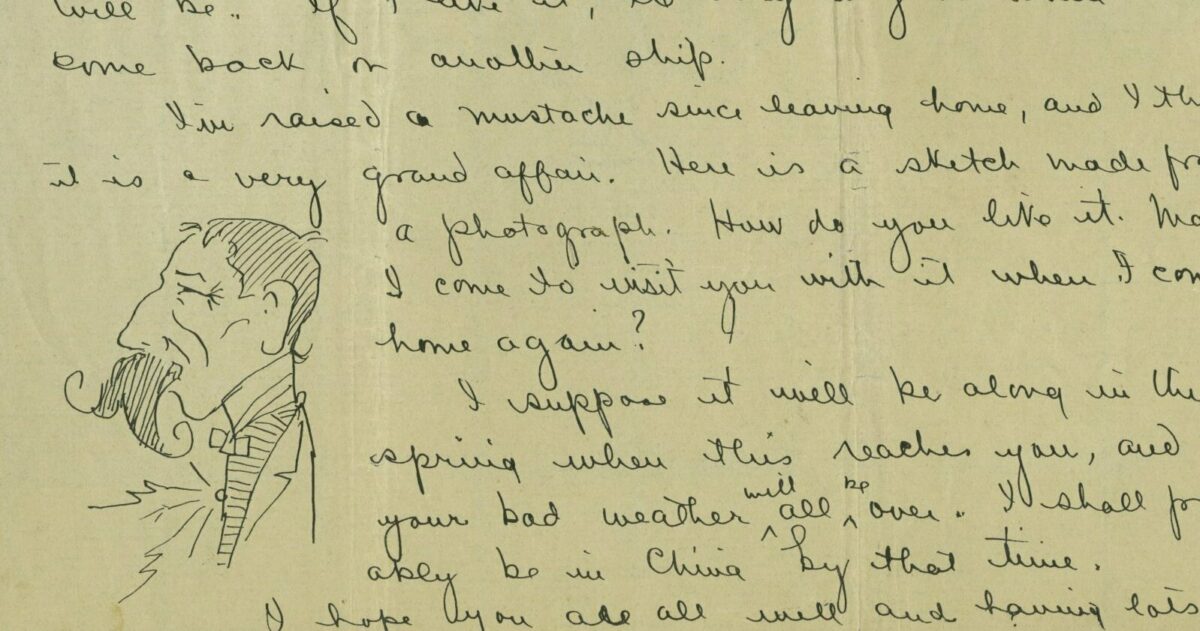 will be. If I
come back on another ship.
I'm raised a mustache since leaving home, and I th
it is a very grand affair. Here is a sketch made fro
a photograph. How do you like it. Ma
I come to visit you with it when I com
home again?
I suppose it will be along in the
spring when this reaches you, and
your bad weather will all be over. I shall p
ably be in China by that time.
I hope you are all well and having lots